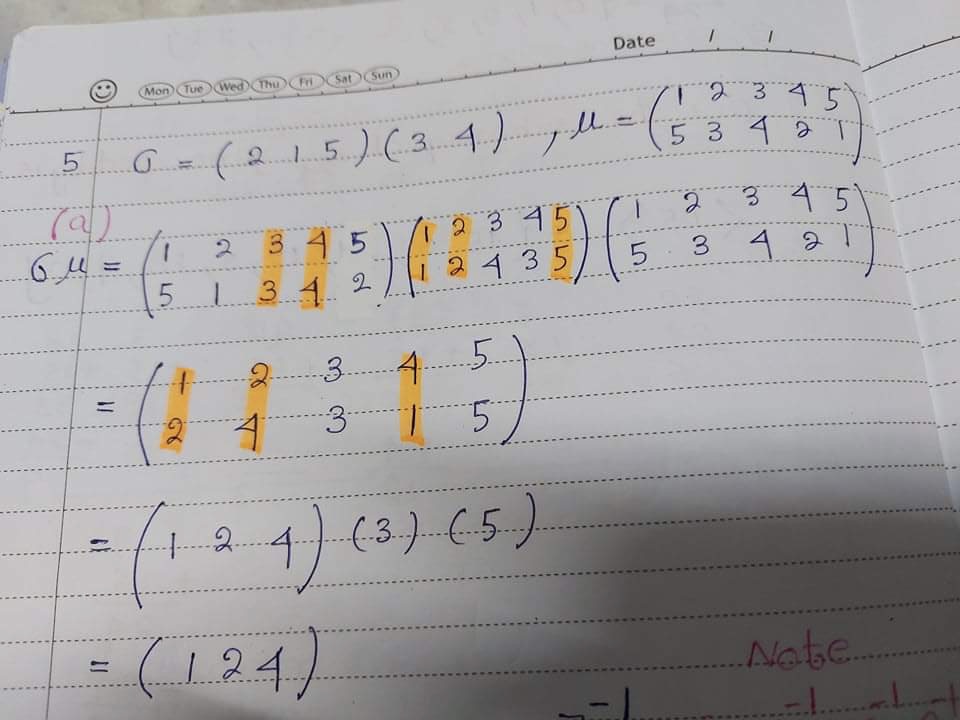 Date / /
Mon Tue Wed Thu Fri Sat Sun
5 σ = (2 1 5)(3 4), μ = (1 2 3 4 5
5 3 4 2 1)
(a)
σμ = (1 2 3 4 5
5 1 3 4 2) (1 2 3 4 5
1 2 4 3 5) (1 2 3 4 5
5 3 4 2 1)
= (1 2 3 4 5
2 4 3 1 5)
= (1 2 4) (3) (5)
= (1 2 4)
Note
-1
-1 -1 -1